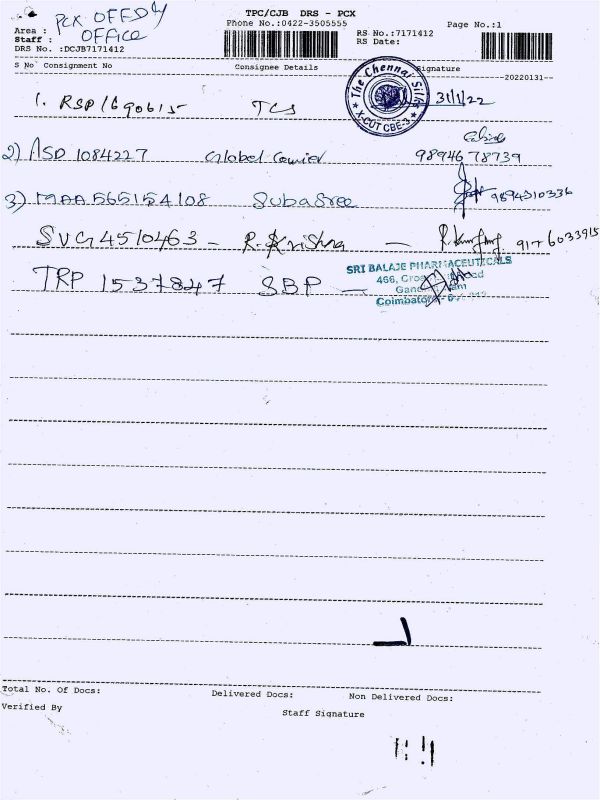 PCX OFFDLY
OFFICE
TPC/CJB DRS - PCX
Phone No.:0422-3505555
Page No.:1
Area :
Staff :
DRS No. :DCJB7171412
RS No.:7171412
RS Date:
S No Consignment No Consignee Details Signature
20220131
The Chennai Silks
X-CUT CBE-3
31/1/22
1. RSP1690615 TCS
2) ASD 1084227 Global Courier 98946 78739
3) MAA565154108 Subasree 9894310336
SVG4510463 - R. Krishna - 9176033915
TRP 1537847 SBP -
SRI BALAJE PHARMACEUTICALS
466,
Coimbatore
Total No. Of Docs: Delivered Docs: Non Delivered Docs:
Verified By Staff Signature